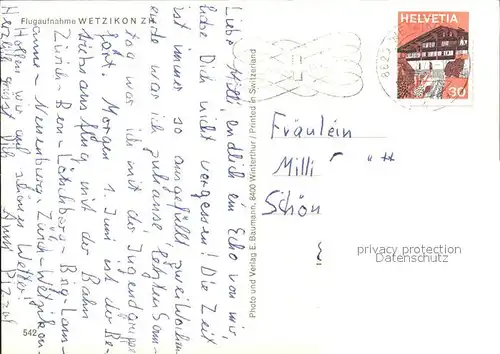 Flugaufnahme WETZIKON Z
Liebe Milli, endlich ein Echo von mir,
habe Dich nicht vergessen! Die Zeit
ist immer so ausgefüllt, zwei Wochen-
ende war ich zuhause, letzten Sam-
tag war ich mit der Jugendgruppe
fort. Morgen 1. Juni ist der Be-
triebsausflug mit der Bahn
Zürich - Bern - Lötschberg - Brig - Laus-
anne - Neuenburg - Zürich - Wetzikon.
Hoffen wir auf schönes Wetter!
Herzlich grüsst Dich
542
Photo und Verlag E. Baumann, 8400 Winterthur / Printed in Switzerland
HELVETIA
30
Fräulein
Milli
Schön
privacy protection
Datenschutz